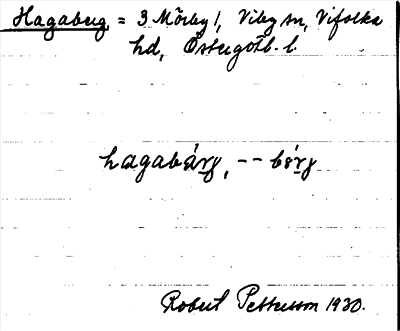 Hagaberg = 3 Mörby 1, Viby sn, Vifolka
hd, Östergötl. l.
hagabärg, -- bérg
Robert Pettersson 1930.